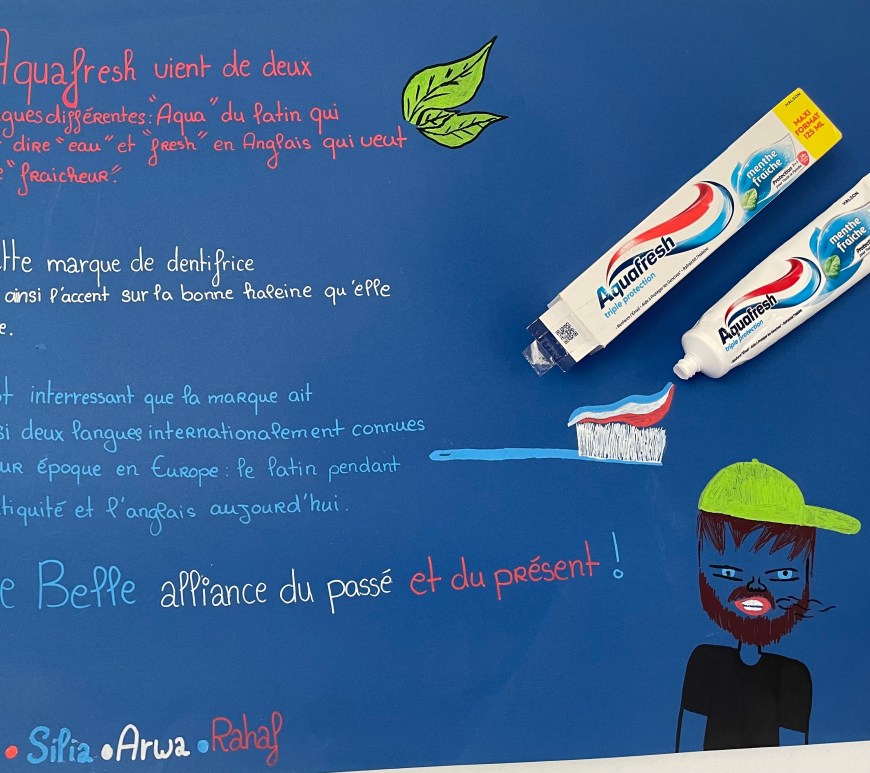 Aquafresh vient de deux
gues différentes: "Aqua" du latin qui
dire "eau" et "fresh" en Anglais qui veut
"fraicheur".
tte marque de dentifrice
ainsi l'accent sur la bonne haleine qu'elle
e.
t interressant que la marque ait
si deux langues internationalement connues
ur époque en Europe : le latin pendant
tiquité et l'anglais aujourd'hui.
e Belle alliance du passé et du présent !
• Silia • Arwa • Rahaf
HALEON
MAXI
FORMAT
125 ML
menthe
fraîche
Aquafresh
triple protection
HALEON
menthe
fraîche
Aquafresh
triple protection